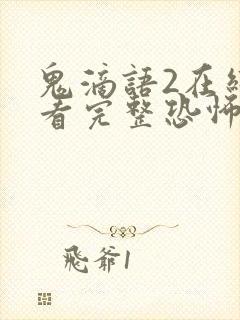 鬼滴語2在線
看完整恐怖
飛爺1